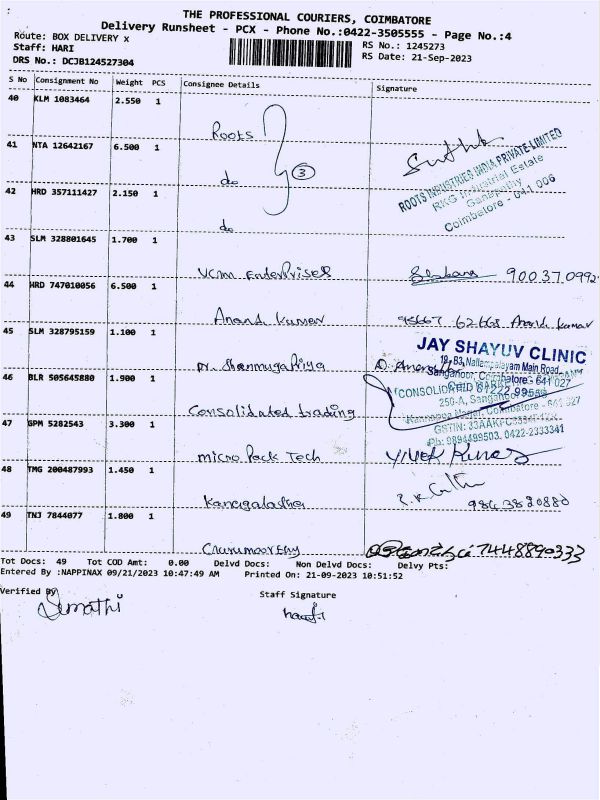 THE PROFESSIONAL COURIERS, COIMBATORE
Delivery Runsheet - PCX - Phone No.:0422-3505555 - Page No.:4
Route: BOX DELIVERY x
RS No.: 1245273
Staff: HARI
RS Date: 21-Sep-2023
DRS No.: DCJB124527304
S No Consignment No Weight PCS Consignee Details Signature
40 KLM 1083464 2.550 1
Roots
41 NTA 12642167 6.500 1
3
do
ROOTS INDUSTRIES INDIA PRIVATE LIMITED
RKG Industrial Estate
Ganapathy
Coimbatore - 641 006
42 HRD 357111427 2.150 1
do
43 SLM 328801645 1.700 1
VCM Enterprises
44 HRD 747010056 6.500 1
Anand Kumar
Anand Kumar
45 SLM 328795159 1.100 1
JAY SHAYUV CLINIC
19, B3, Nallampalayam Main Road,
Sanganoor, Coimbatore - 641 027
Dr. Shanmugapriya
46 BLR 505645880 1.900 1
CONSOLIDATED
250-A, Sanganoor
Coimbatore - 641 027
Consolidated trading
47 GPM 5282543 3.300 1
Ph: 9894499503, 0422-2333341
Micro Pack Tech
Vivek Kumar
48 TMG 200487993 1.450 1
49 TNJ 7844077 1.800 1
7448890333
Tot Docs: 49 Tot COD Amt: 0.00 Delvd Docs: Non Delvd Docs: Delvy Pts:
Entered By :NAPPINAX 09/21/2023 10:47:49 AM Printed On: 21-09-2023 10:51:52
Verified By
Staff Signature